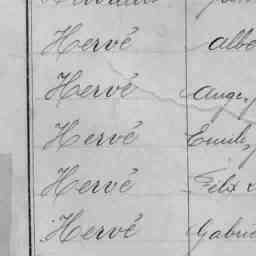 Hervé Albe
Hervé Ange
Hervé Emile
Hervé Félix
Hervé Gabrie